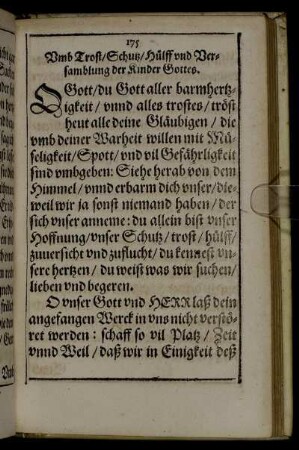 175
Vmb Trost/Schutz/Hülff vnd Ver-
samblung der Kinder Gottes.
O Gott/du Gott aller barmhertz-
igkeit/vnnd alles trostes/tröst
heut alle deine Gläubigen/die
vmb deiner Warheit willen mit Mü-
seligkeit/Spott/vnd vil Gefährligkeit
sind vmbgeben: Siehe herab von dem
Himmel/vnnd erbarm dich vnser/die-
weil wir ja sonst niemand haben/der
sich vnser anneme: du allein bist vnser
Hoffnung/vnser Schutz/trost/hülff/
zuuersicht vnd zuflucht/du kennest vn-
sere hertzen/du weist was wir suchen/
lieben vnd begeren.
O vnser Gott vnd HERR laß dein
angefangen Werck in vns nicht verstö-
ret werden: schaff so vil Platz/Zeit
vnnd Weil/daß wir in Einigkeit deß